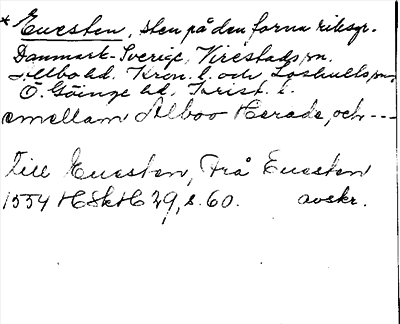 * Euesten, sten på den forna riksgr.
Danmark-Sverige, Virestads sn.
Allbo hd. Kron. l. och Loshults sn,
Ö. Göinge hd, Krist. l.
emellam Alboo Herade, och ---
Till Euesten, Frå Euesten
1554 HSkH 29, s. 60. avskr.